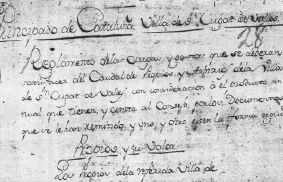 Principado de Cataluña Villa de Sn. Cugat de Valles.
28
Reglamento de las Cargas, y gastos que se deberan
satisfacer del Caudal de Propios, y Arbitrios de la Villa
de Sn. Cugat de Valles con consideracion à el producto an-
nual que tienen, y consta al Consejo, por los Documentos
que se le han remitido, y uno, y otro es en la forma siguien
Propios, y su Valor
Los Propios de la referida Villa de